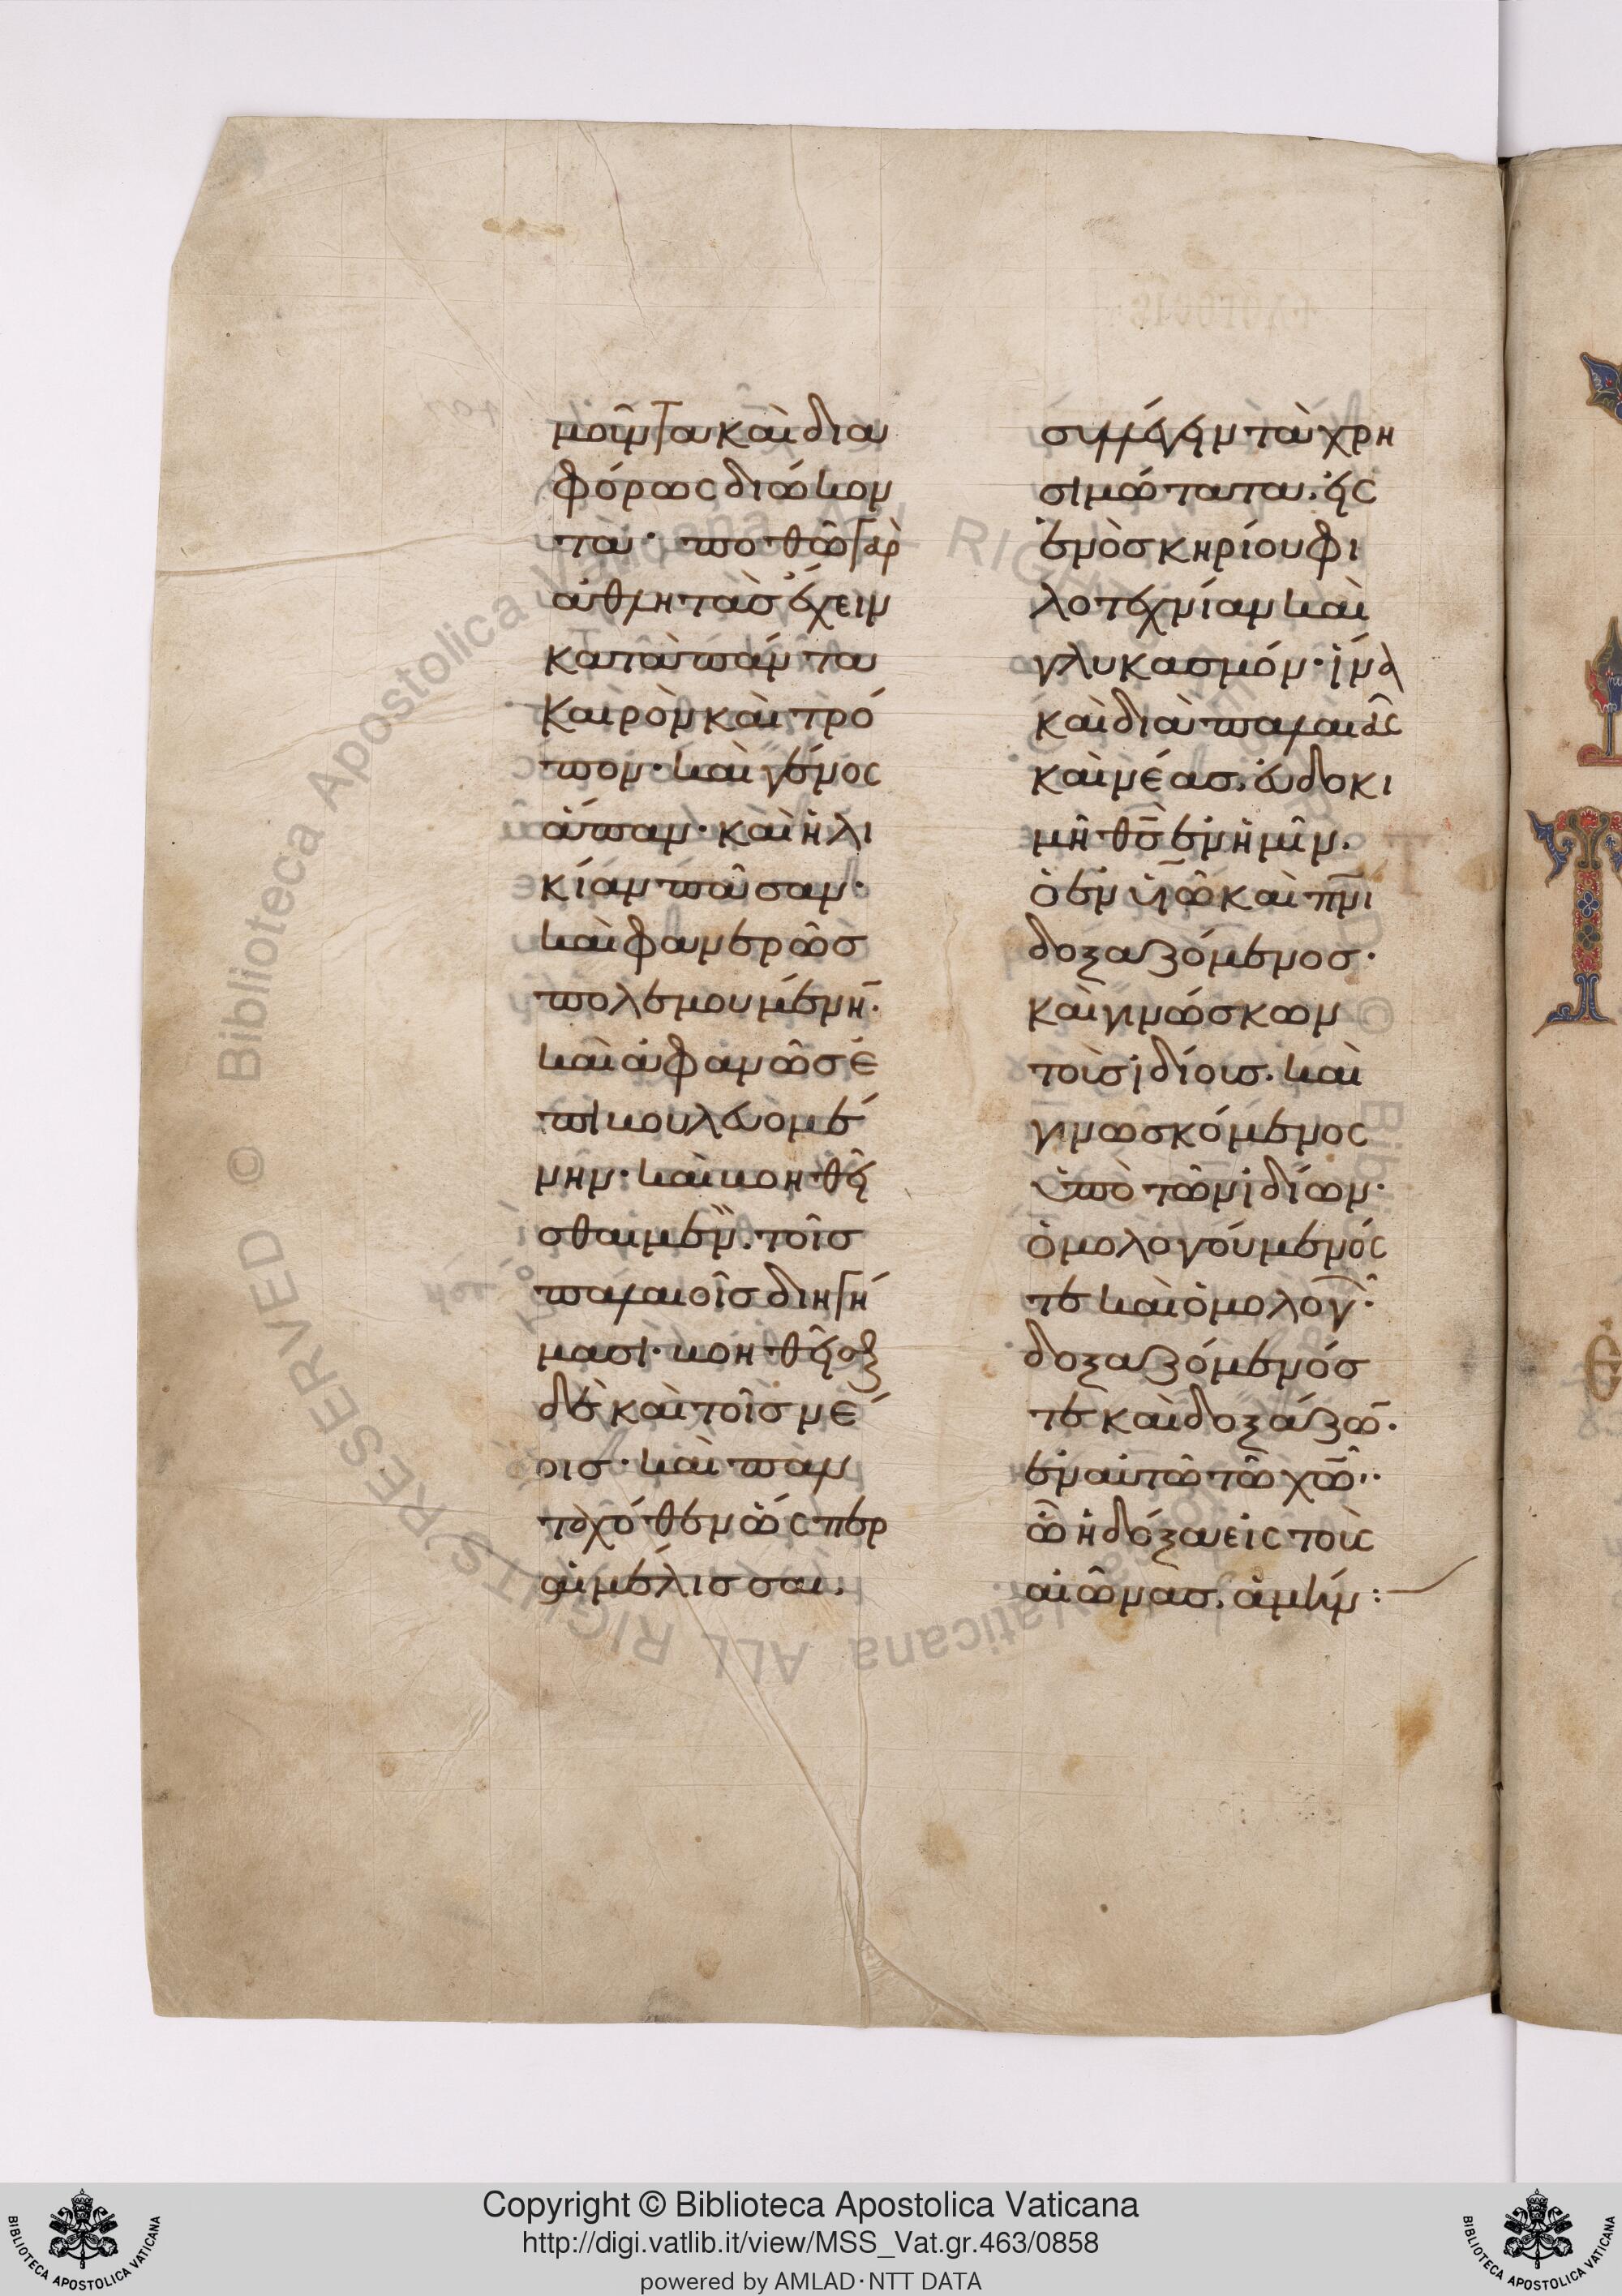 μοῖν τὰ καὶ δια
φόρως διώκον
τα· ποθῶ γὰρ
ἀθλητὰσ ἔχειν
κατὰ πάντα
καιρὸν καὶ τρό
πον· καὶ γένος
ἅπαν· καὶ ἡλι
κίαν πᾶσαν·
καὶ φανερῶσ
πολεμουμένη̄·
καὶ ἀφανῶσ ἐ
πιβουλευομέ
νην· καὶ βοηθεῖ
σθαι μὲν. τοῖσ
παλαιοῖσ διηγή
μασι· βοηθεῖσθαι
δὲ καὶ τοῖσ νέ
οισ· καὶ παν
ταχόθεν ὥσπερ
αἱ μέλισσαι.
συλλέγειν τὰ χρη
σιμώτατα. εἰς
ἑνὸσ κηρίου φι
λοτεχνίαν καὶ
γλυκασμόν· ἵνα
καὶ διὰ παλαιᾶς
καὶ νέασ. εὐδοκι
μῆ θσ̄ ἐν ἡμῖν.
ὁ ἐν ὑιῶ̄ καὶ πνῑ
δοξαζόμενοσ·
καὶ γινώσκων
τοὺσ ἰδίουσ. καὶ
γινωσκόμενος
ὑπὸ τῶν ἰδίων·
ὁμολογούμενός
τε καὶ ὁμολογῶ̄·
δοξαζόμενόσ
τε καὶ δοξάζω̄·
ἐν αὐτῶ τῶ χῶ̄·
ὧ ἡ δόξα εἰς τοὺς
αἰῶνασ. ἀμήν:
Copyright © Biblioteca Apostolica Vaticana
http://digi.vatlib.it/view/MSS_Vat.gr.463/0858
powered by AMLAD·NTT DATA
BIBLIOTECA APOSTOLICA VATICANA
BIBLIOTECA APOSTOLICA VATICANA